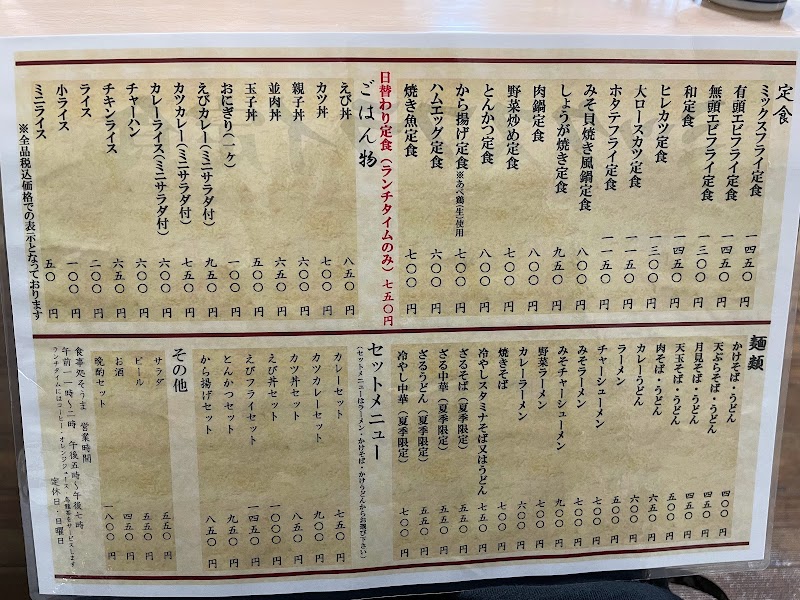 定食
ミックスフライ定食 一四五〇円
有頭エビフライ定食 一四五〇円
無頭エビフライ定食 一三〇〇円
和定食 一四五〇円
ヒレカツ定食 一三〇〇円
大ロースカツ定食 一一五〇円
ホタテフライ定食 一一五〇円
みそ貝焼き風鍋定食 八〇〇円
しょうが焼き定食 九五〇円
肉鍋定食 八〇〇円
野菜炒め定食 七〇〇円
とんかつ定食 八〇〇円
から揚げ定食※あべ鶏(生)使用 七〇〇円
ハムエッグ定食 六〇〇円
焼き魚定食 七〇〇円
日替わり定食(ランチタイムのみ) 七五〇円
ごはん物
えび丼 八五〇円
カツ丼 七〇〇円
親子丼 六五〇円
並肉丼 六〇〇円
玉子丼 五〇〇円
おにぎり(一ヶ) 一〇〇円
えびカレー(ミニサラダ付) 九五〇円
カツカレー(ミニサラダ付) 七五〇円
カレーライス(ミニサラダ付) 六〇〇円
チャーハン 六〇〇円
チキンライス 六五〇円
ライス 二〇〇円
小ライス 一〇〇円
ミニライス 五〇円
※全品税込価格での表示となっております
麺類
かけそば・うどん 四〇〇円
天ぷらそば・うどん 円
月見そば・うどん 四五〇円
天玉そば・うどん 円
肉そば・うどん 六五〇円
カレーうどん 六〇〇円
ラーメン 五〇〇円
チャーシューメン 七〇〇円
みそラーメン 七〇〇円
みそチャーシューメン 九〇〇円
野菜ラーメン 七〇〇円
カレーラーメン 六〇〇円
焼きそば 七〇〇円
冷やしスタミナそば又はうどん 七五〇円
ざるそば(夏季限定) 五五〇円
ざる中華(夏季限定) 五五〇円
ざるうどん(夏季限定) 五五〇円
冷やし中華(夏季限定) 七〇〇円
セットメニュー
(セットメニューはラーメン・かけそば・かけうどんからお選び下さい)
カレーセット 七五〇円
カツカレーセット 円
カツ丼セット 八五〇円
えび丼セット 一〇〇〇円
えびフライセット 一四五〇円
とんかつセット 九五〇円
から揚げセット 八五〇円
その他
サラダ 円
ビール 五五〇円
お酒 四五〇円
晩酌セット 一八〇〇円
食事処そうま 営業時間
午前一一時~二時 午後五時~午後七時
ランチタイムにはコーヒー・オレンジジュース・烏龍茶をサービスします
定休日・日曜日